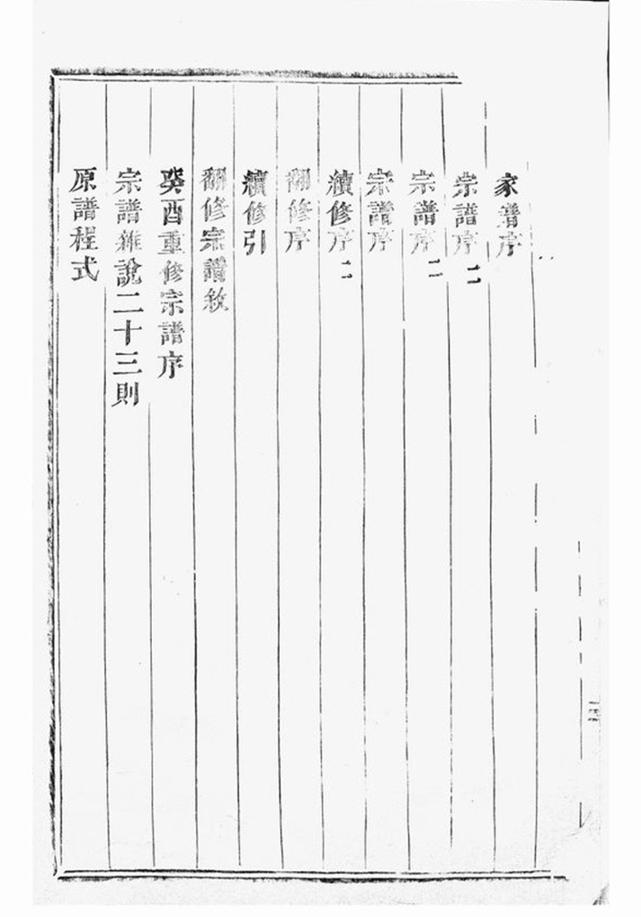 家譜序
宗譜序二
宗譜序二
宗譜序
續修序二
翻修序
續修引
翻修宗譜敘
癸酉重修宗譜序
宗譜雜說二十三則
原譜程式